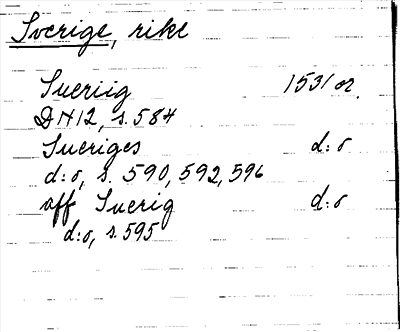 Sverige, rike
Sueriig 1531 or.
DN12, s. 584
Sueriges d:o
d:o, s. 590, 592, 596
aff Suerig d:o
d:o, s. 595